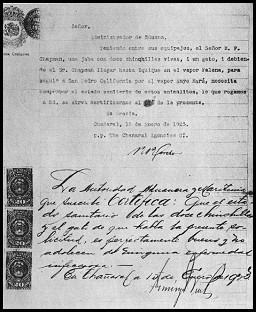 Señor,
Administrador de Aduana.
Teniendo entre sus equipajes, el Señor M. F.
Chapman, una jaba con doce chinchillas vivas, i un gato, i debien-
do el Sr. Chapman llegar hasta Iquique en el vapor Palena, para
seguir a San Pedro California por el vapor Anyo Marú, necesita
comprobar el estado sanitario de estos animalitos, le que rogamos
a Ud. se sirva certificarnos al pié de la presente.
Es Gracia,
Chañaral, 13 de Enero de 1923.
p.p. The Chanaral Agencies Cº.
La Autoridad Aduanera y Marítima
que suscribe Certifica: Que el esta-
do sanitario de las doce chinchillas
y el gato de que habla la presente so-
licitud, es perfectamente bueno y no
adolecen de ninguna enfermedad
infecciosa.—
Chañaral 13 de Enero de 1923
20
20
20